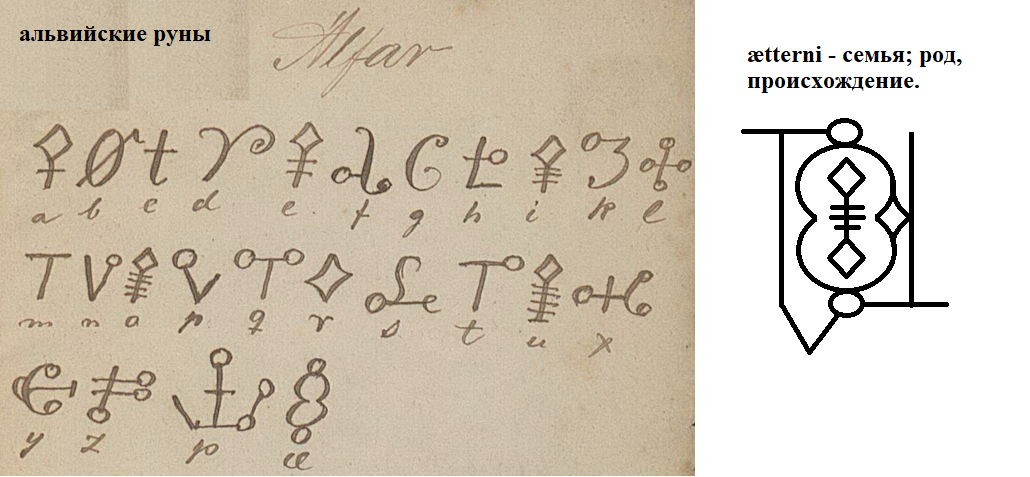 альвийские руны
Alfar
a b c d e f g h i k l
m n o p q r s t u x
y z þ æ
ætterni - семья; род,
происхождение.